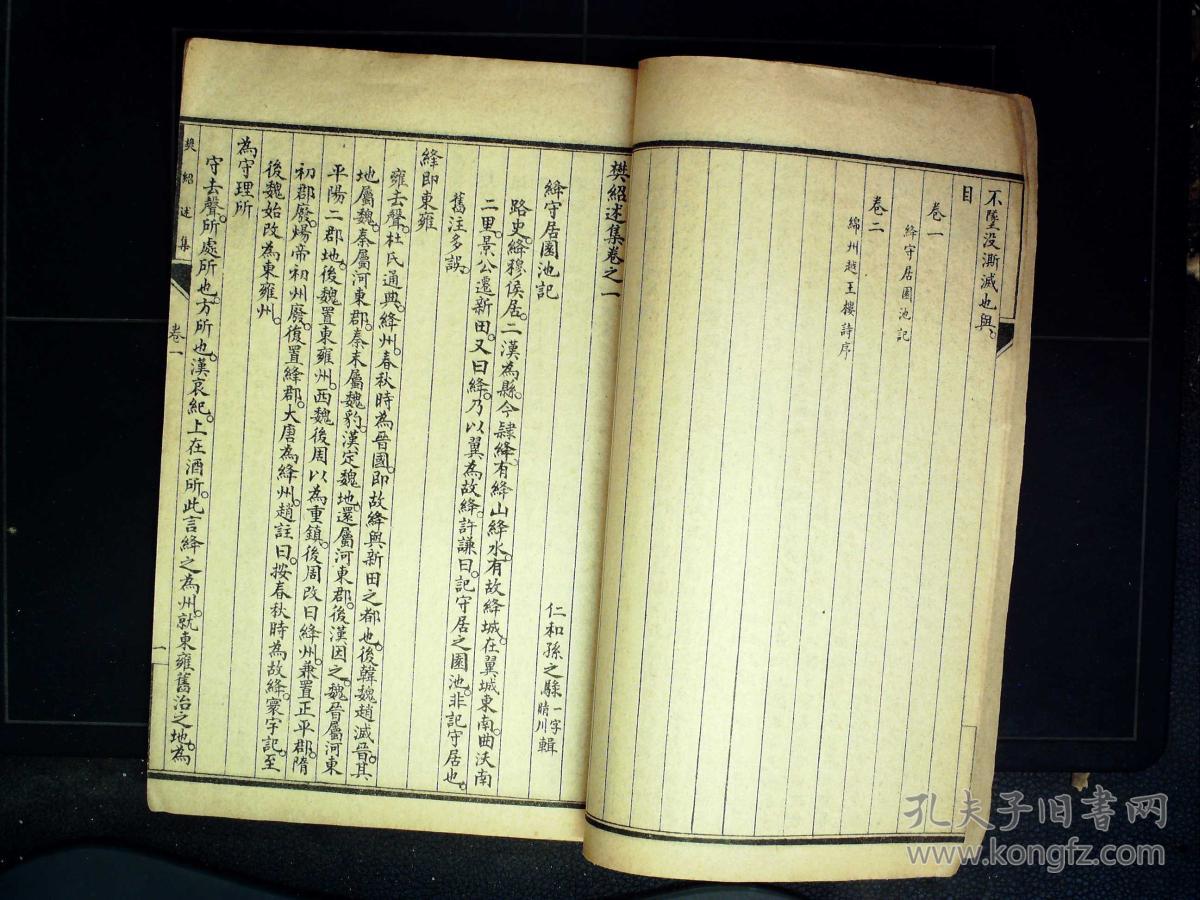 不墜没澌滅也與
目
卷一
絳守居園池記
卷二
綿州越王樓詩序
樊紹述集卷之一
仁和孫之騄一字晴川輯
絳守居園池記
路史絳穆侯居二漢為縣今隸絳有絳山絳水有故絳城在翼城東南曲沃南
二里景公遷新田又曰絳乃以翼為故絳許謙曰記守居之園池非記守居也
舊注多誤
絳即東雍
雍去聲杜氏通典絳州春秋時為晉國即故絳與新田之都也後韓魏趙滅晉其
地屬魏秦屬河東郡秦末屬魏豹漢定魏地還屬河東郡後漢因之魏晉屬河東
平陽二郡地後魏置東雍州西魏後周以為重鎮後周改曰絳州兼置正平郡隋
初郡廢煬帝初州廢復置絳郡大唐為絳州趙註曰按春秋時為故絳寰宇記至
後魏始改為東雍州
為守理所
守去聲所處所也方所也漢哀紀上在酒所此言絳之為州就東雍舊治之地為
樊紹述集
卷一
一
孔夫子旧书网
www.kongfz.com